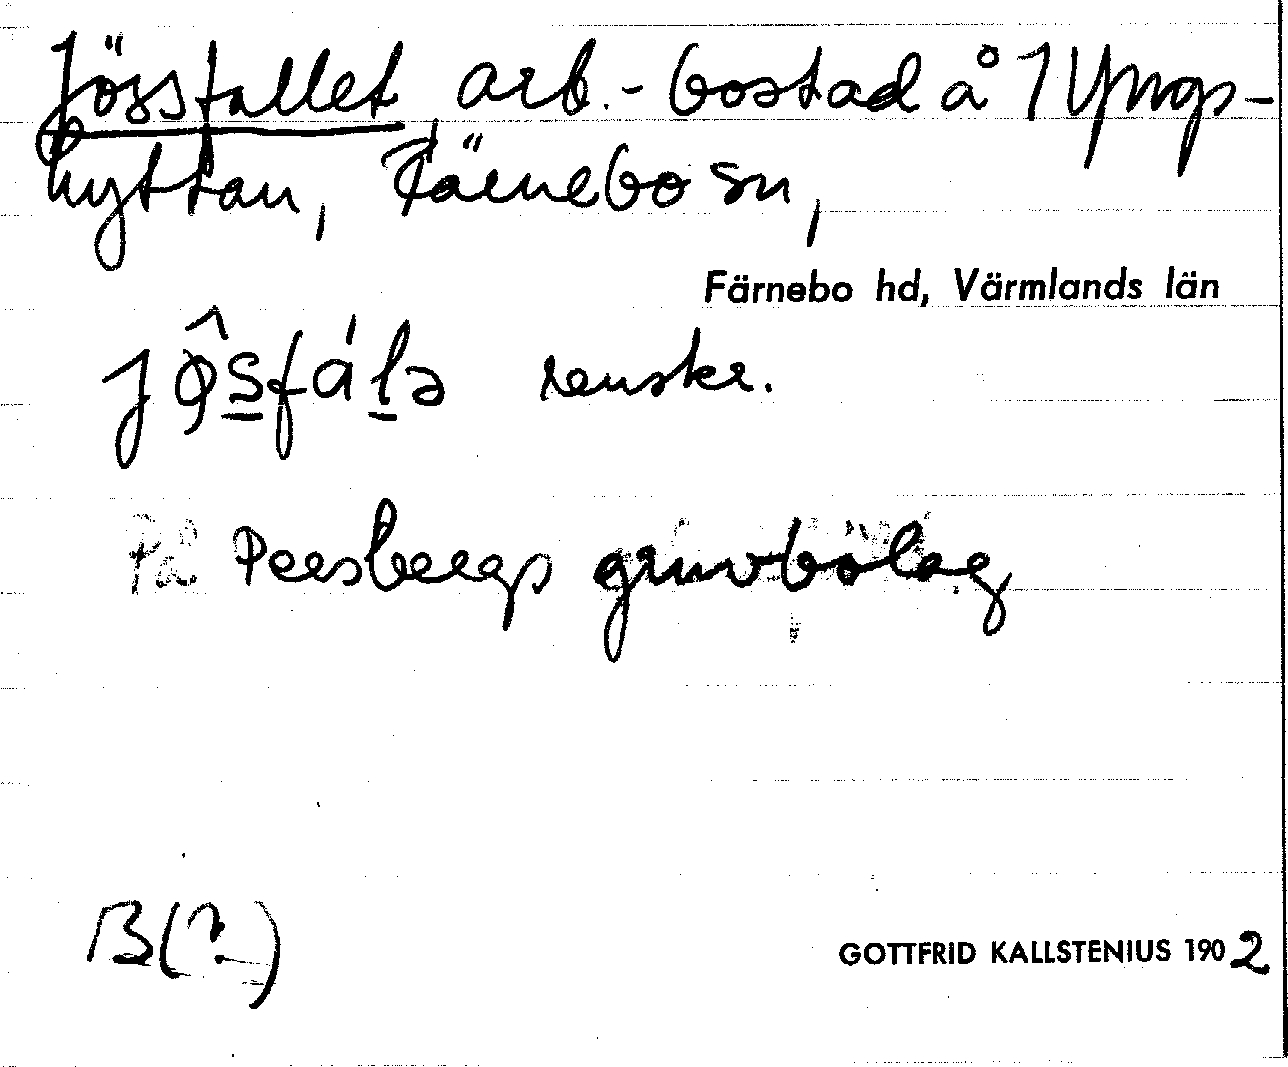 Jössfallet arb.-bostad å 1 Yngs-
hyttan, Färnebo sn,
Färnebo hd, Värmlands län
jö̂sfálə renskr.
På Persbergs gruvbolag
B(?)
GOTTFRID KALLSTENIUS 1902